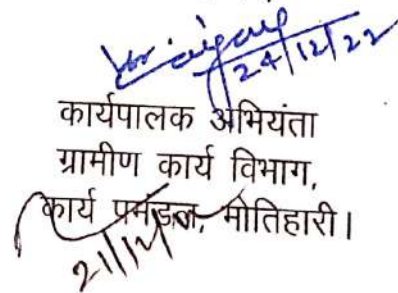 24/12/22
कार्यपालक अभियंता
ग्रामीण कार्य विभाग,
कार्य प्रमंडल, मोतिहारी।